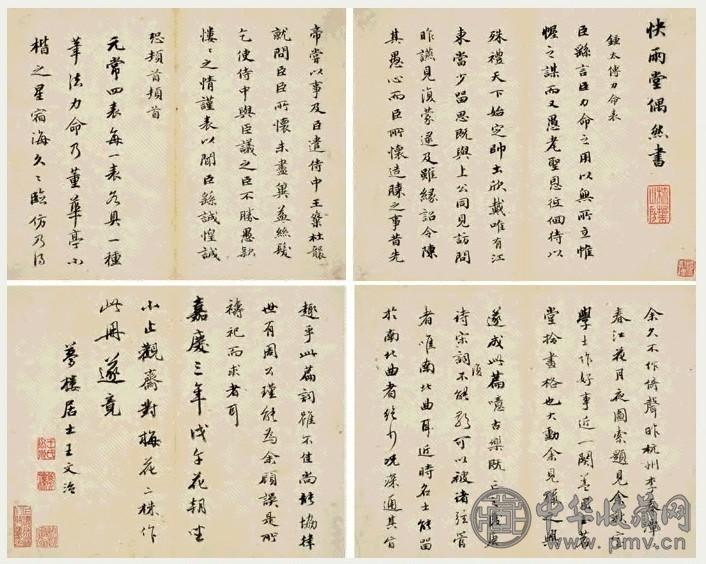 快雨堂偶然書
鍾太傅力命表
臣繇言臣力命之用以無所立惟
幄之謀而又愚耄聖恩徘徊待以
殊禮天下始定帥土欣戴唯有江
東當少留思既與上公同見訪問
昨讌見復蒙逮及雖緣詔令陳
其愚心而臣所懷造膝之事昔先
帝嘗以事及臣遣侍中王粲杜襲
就問臣臣所懷未盡冀益絲髮
乞使侍中與臣議之臣不勝愚款
慺慺之情謹表以聞臣繇誠惶誠
恐頓首頓首
元常四表每一表各具一種
筆法力命乃董華亭小
楷之星宿海久久臨仿乃得
余久不作倚聲昨杭州李
春江花月夜圖索題見余
學士作好事近一闋
堂拾書格也大動余見獵之興
遂成此篇噫古樂既亡之後唐
詩宋詞不能復歌可以被諸弦管
者唯南北曲耳近時名士能留
於南北曲者絕少況深通其旨
趣乎此篇詞雖不佳尚能協律
世有周公瑾能為余顧誤是所
禱祀而求者耳
嘉慶三年戊午花朝坐
小止觀齋對梅花二株作
此冊遂竟
夢樓居士王文治
中华收藏网
www.pmv.cn